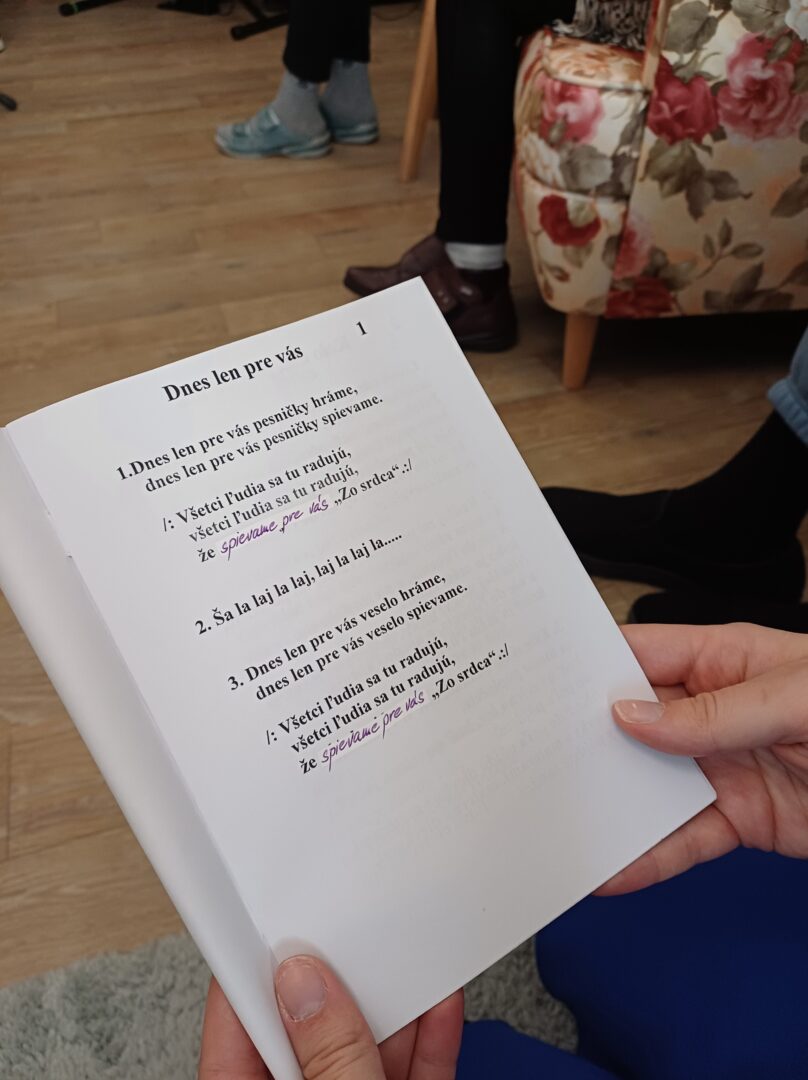 1
Dnes len pre vás
1.Dnes len pre vás pesničky hráme,
dnes len pre vás pesničky spievame.
/: Všetci ľudia sa tu radujú,
všetci ľudia sa tu radujú,
že spievame pre vás „Zo srdca“ :/
2. Ša la laj la laj, laj la laj la.....
3. Dnes len pre vás veselo hráme,
dnes len pre vás veselo spievame.
/: Všetci ľudia sa tu radujú,
všetci ľudia sa tu radujú,
že spievame pre vás „Zo srdca“ :/